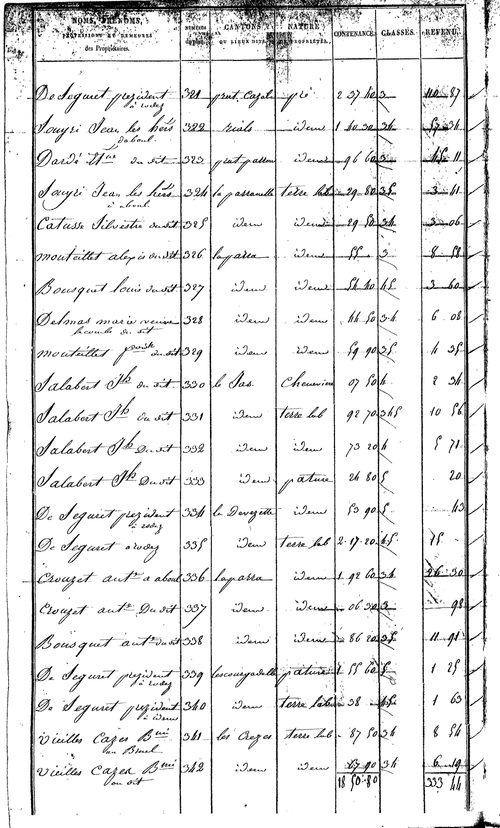 NOMS, PRÉNOMS, PROFESSIONS ET DEMEURES des Propriétaires. CANTONS OU LIEUX DITS. NATURE DE PROPRIÉTÉS. CONTENANCE. CLASSES. REVENU.
De Seguret president à rodez 321 prat. Cazal pré 2 37 40 3 110 87
Jouyri Jean les hérs d'aboul 322 idem 1 40 30 34 57 34
Dardé du dit 323 idem 96 60 3 45 11
Jouyri Jean les hérs à aboul 324 la parrouelle terre lab 29 80 35 3 41
Catusse Silvestre du dit 325 idem idem 29 50 34 3 06
monteillet alexis du dit 326 laparra idem 55 3 8 58
Bousquet louis du dit 327 idem idem 54 40 45 3 60
Delmas marie veuve du dit 328 idem idem 44 50 34 6 08
monteillet du dit 329 idem idem 59 90 35 4 35
Salabert Jh du dit 330 le Pas Cheneviere 07 50 4 2 34
Salabert Jh du dit 331 idem terre lab 92 70 345 10 56
Salabert Jh Du dit 332 idem idem 73 20 4 5 71
Salabert Jh Du dit 333 idem pature 24 80 5 20
De Seguret president à rodez 334 la Devezette idem 53 90 5 43
De Seguret à rodez 335 idem terre lab 2 17 20 45 15
Crouzet ant. a aboul 336 laparra idem 1 92 60 34 26 30
Crouzet ant. Du dit 337 idem idem 06 30 3 98
Bousquet ant. du dit 338 idem idem 86 20 35 11 91
De Seguret president à rodez 339 lescourgadelle pature 1 55 60 5 1 25
De Seguret president à idem 340 idem terre lab 38 45 1 63
Vieilles Cazes Bmi au Bruel 341 les Crezes terre lab 87 50 34 8 54
Vieilles Cazes Bmi au dit 342 idem idem 67 90 34 6 19
18 50 80 333 44